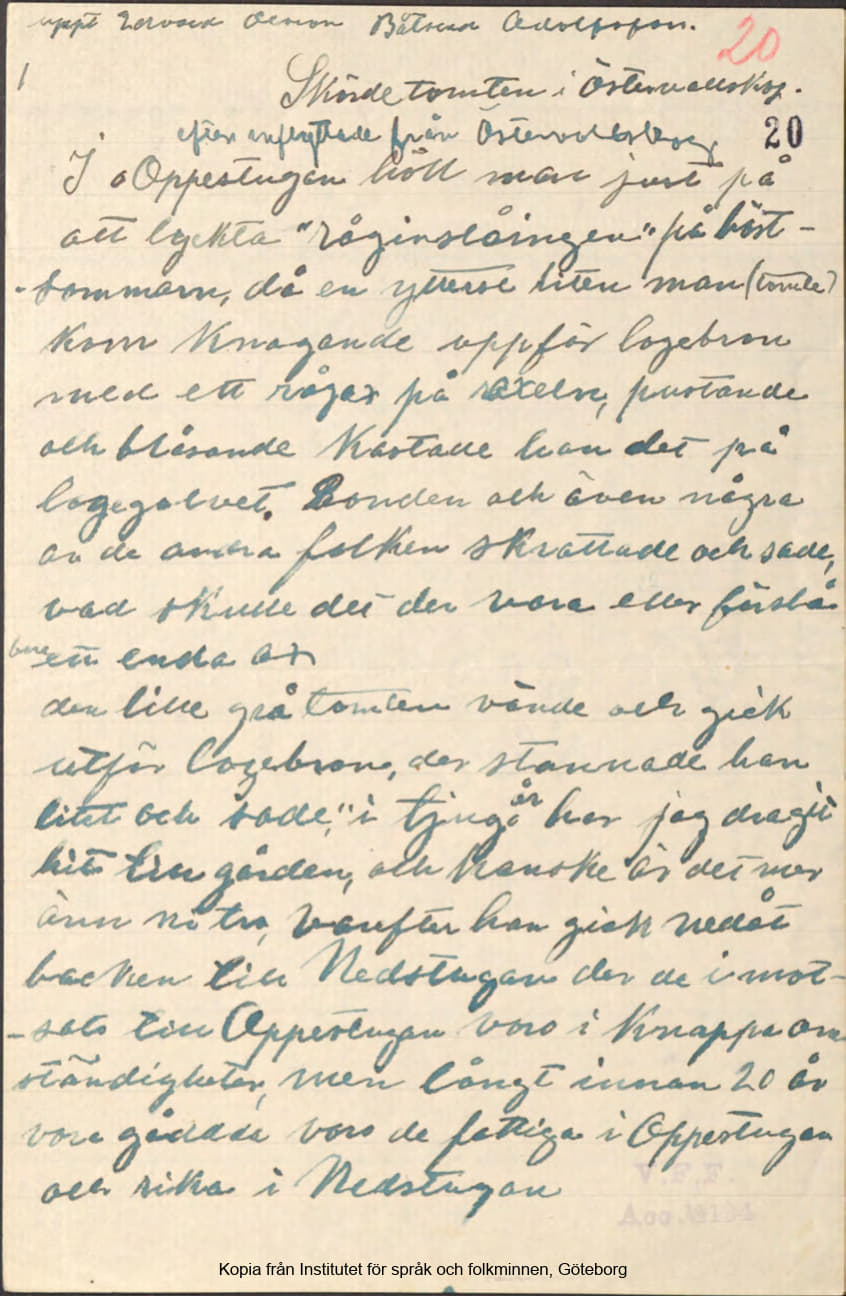 uppt Edvard Olsson Båtsman Adolfsson.
20
1
Skördetomten i Östervallskog.
efter anflyttade från Östervallskog 20
I Oppestugan höll man just på
att lyckta "råginslåingen" på höst-
-sommarn, då en ytterst liten man (tomte)
kom knogande uppför logebron
med ett rågax på axeln, pustande
och blåsande kastade han det på
logegolvet. Bonden och även några
av de andra folken skrattade och sade,
vad skulle det der vara eller förslå
bara ett enda ax
den lille grå tomten vände och gick
utför logebron, der stannade han
litet och sade, "i tjugo år har jag dragit
hit till gården, och kanske är det mer
änn ni tro, varefter han gick nedåt
backen till Nedstugan der de i mot-
-sats till Oppestugan voro i knappa om
ständigheter, men långt innan 20 år
vore gådda voro de fattiga i Oppestugan
och rika i Nedstugan
V.F.F.
Acc.
Kopia från Institutet för språk och folkminnen, Göteborg